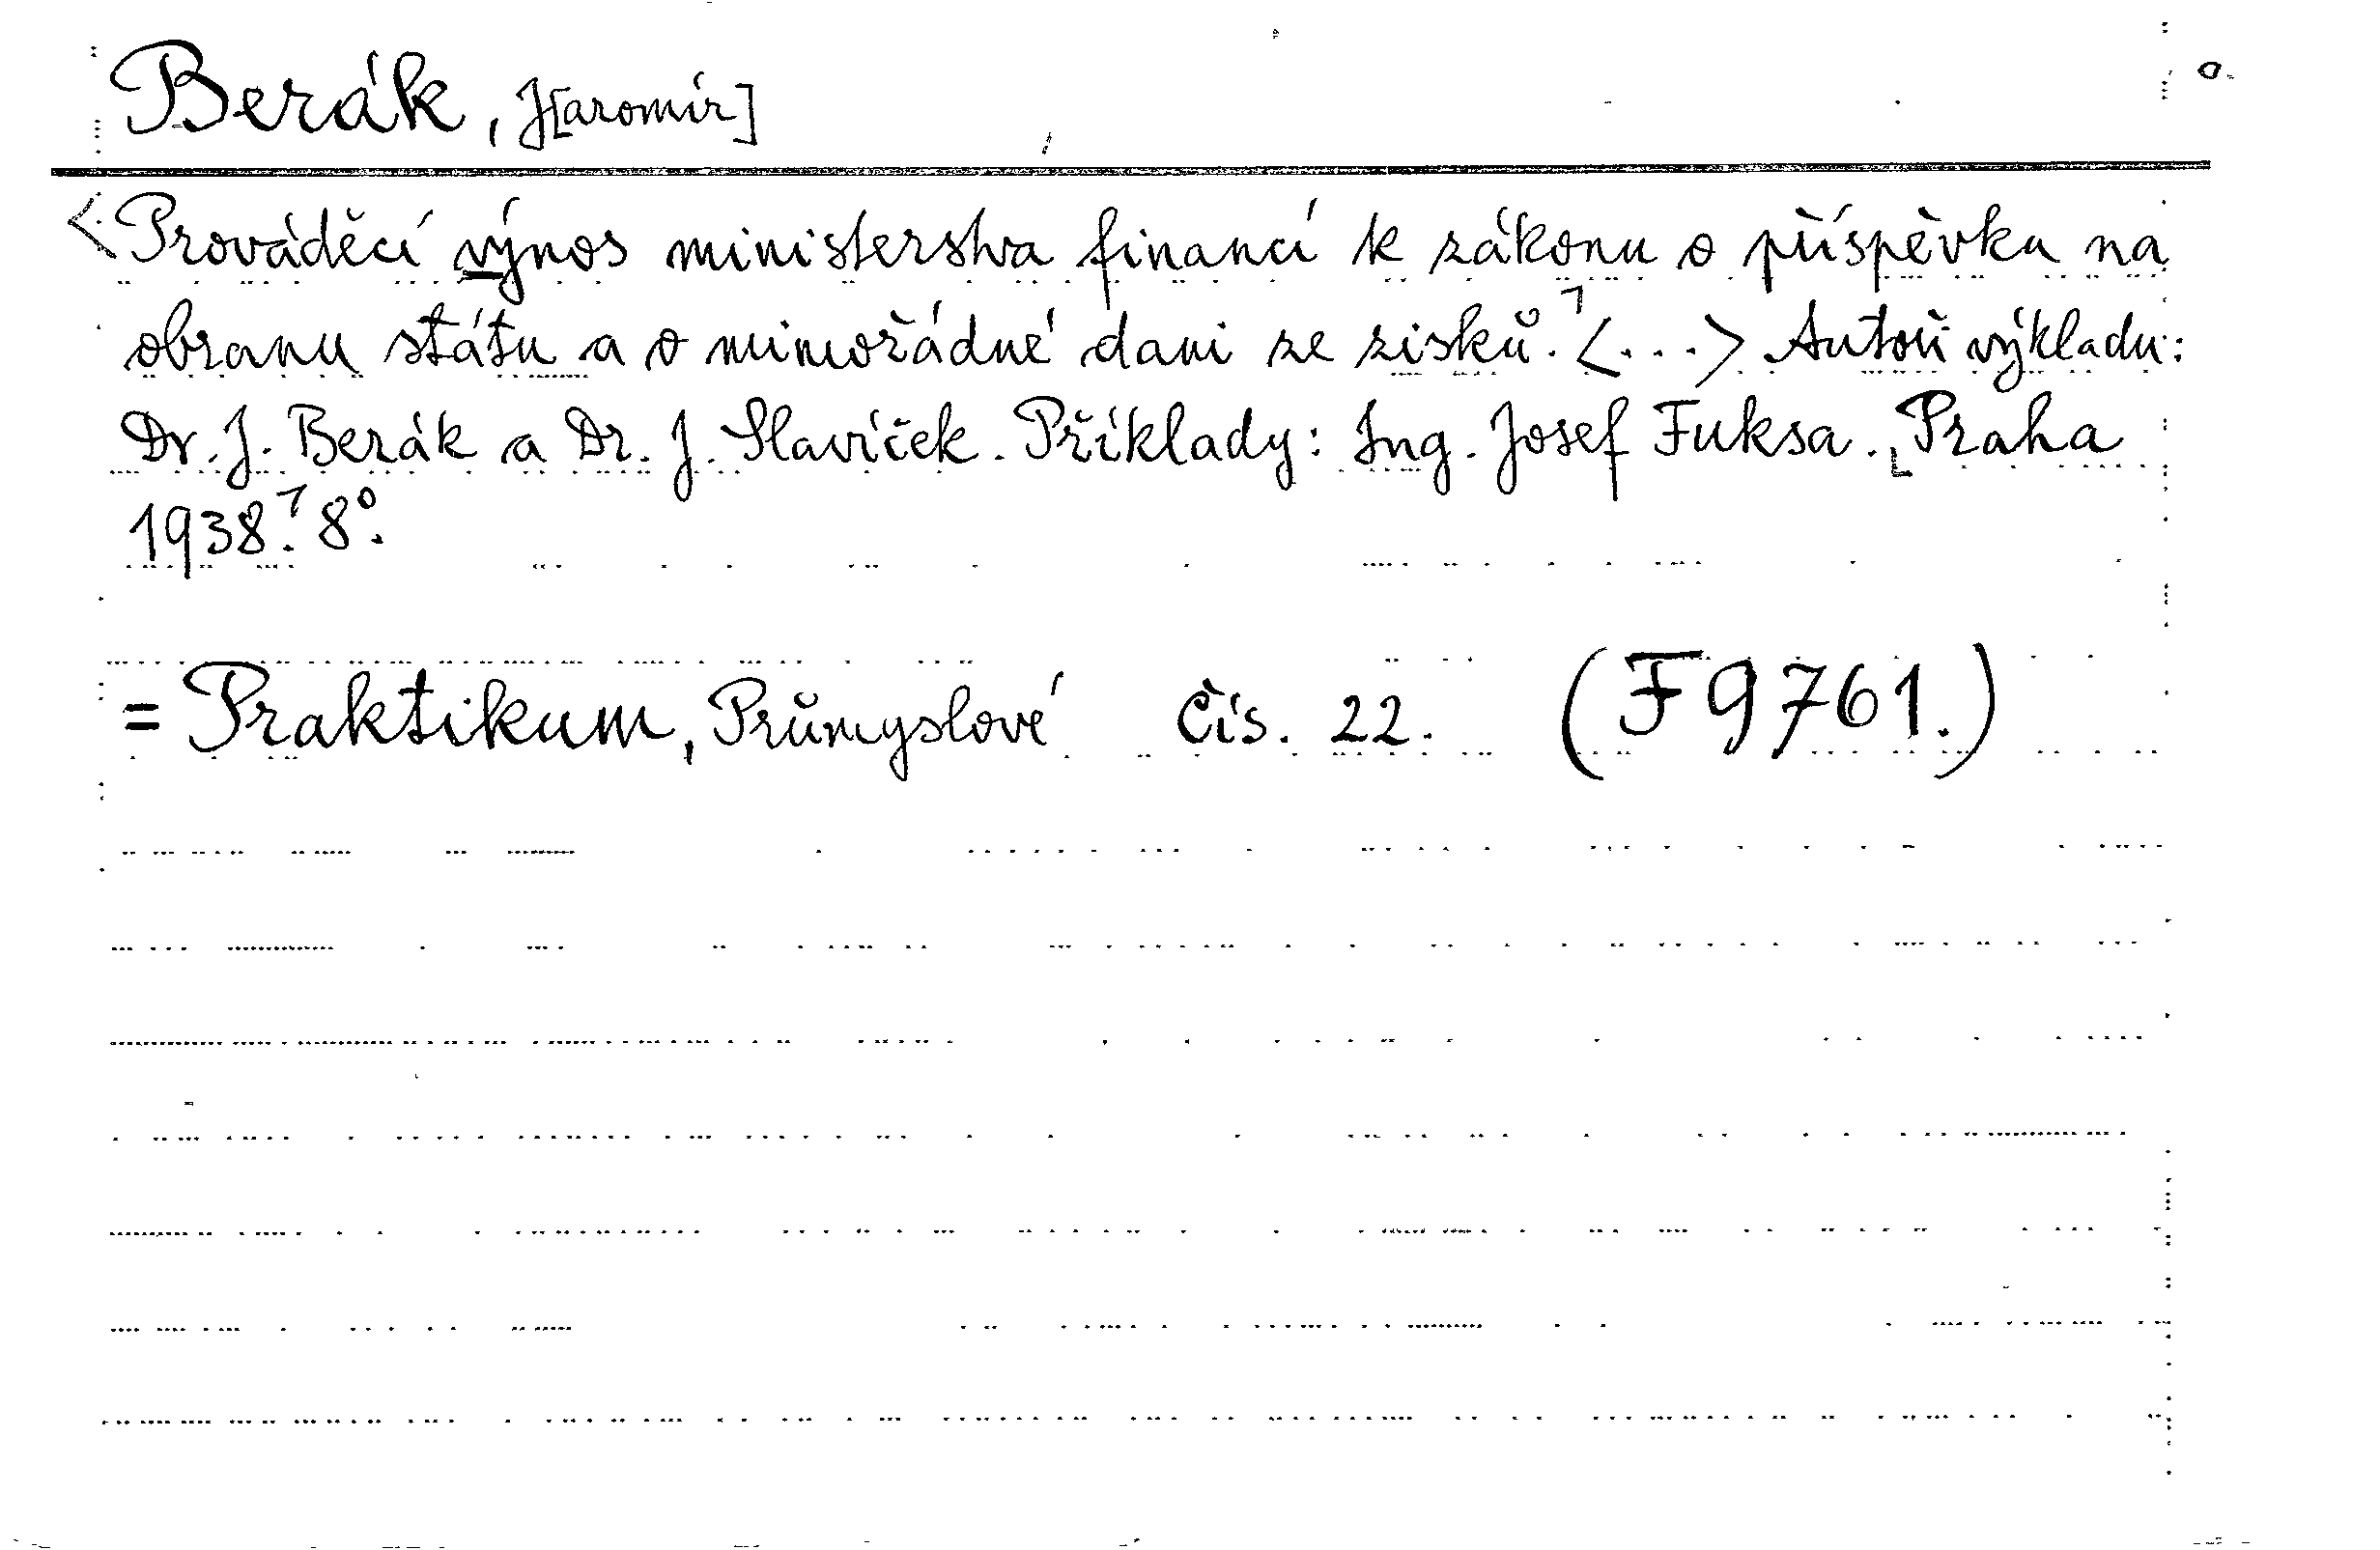 Berák, J[aromír]
<Prováděcí výnos ministerstva financí k zákonu o příspěvku na
obranu státu a o mimořádné dani ze zisků.⌝ <...> Autoři výkladu:
Dr. J. Berák a Dr. J. Slavíček. Příklady: Ing. Josef Fuksa. ⌞Praha
1938.⌝ 8°.
= Praktikum, Průmyslové Čís. 22. (F 9761.)